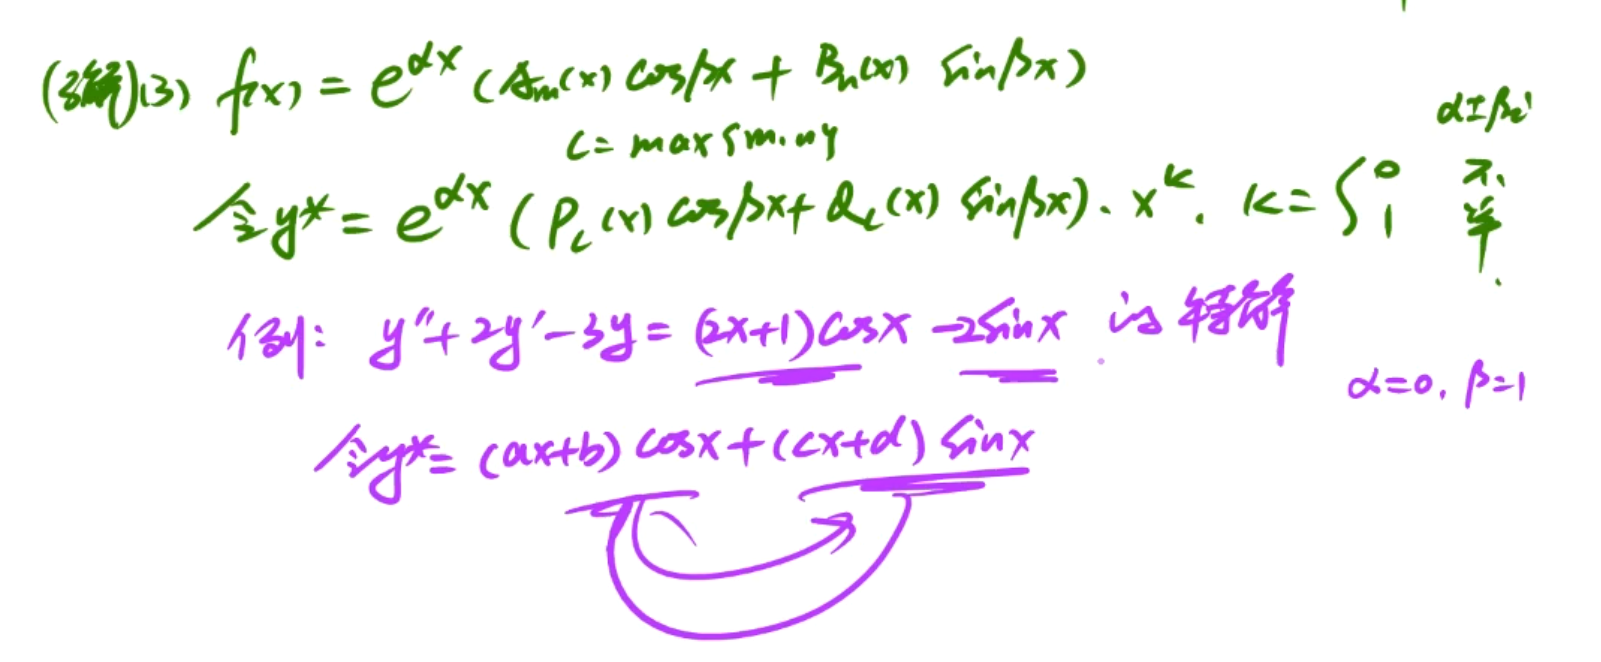 (了解)(3) f(x) = e^{αx} (A_m(x) cosβx + B_n(x) sinβx)
l = max{m.n}
α±βi
令y* = e^{αx} (P_l(x) cosβx + Q_l(x) sinβx)·x^k. k = { 0 不. 1 单.
例: y″+2y′-3y = (2x+1)cosx -2sinx 的特解
α=0, β=1
令y* = (ax+b) cosx + (cx+d) sinx